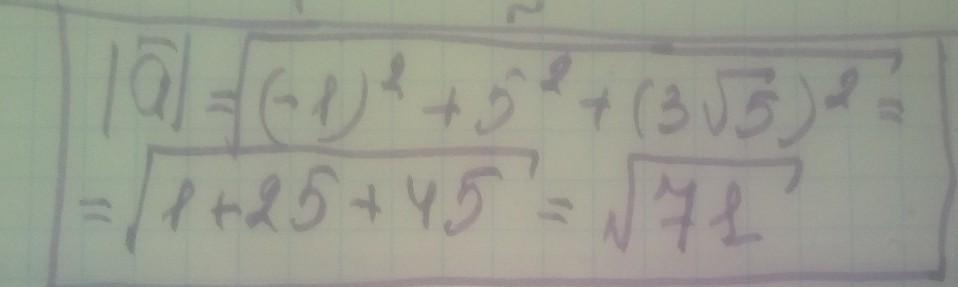 |a̅| = √((-1)² + 5² + (3√5)²) =
= √(1 + 25 + 45) = √71